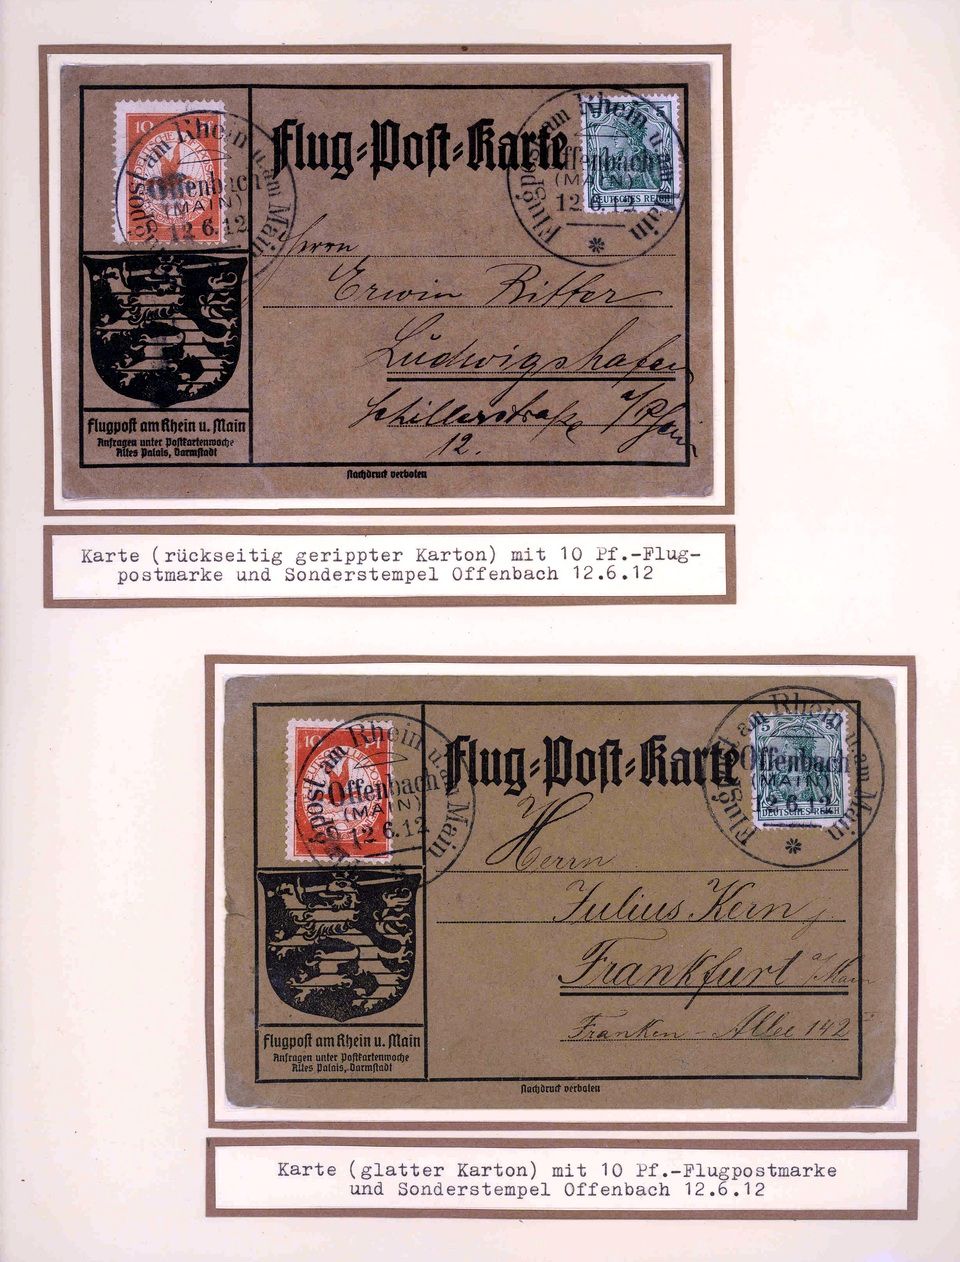 Flug-Post-Karte
10
Flugpost am Rhein u. am Main
Offenbach
(MAIN)
12.6.12
5
DEUTSCHES REICH
Flugpost am Rhein u. am Main
Offenbach
(MAIN)
12.6.12
Herrn
Erwin Ritter
Ludwigshafen
a/Rhein
Schillerstraße
12.
Flugpost am Rhein u. Main
Anfragen unter Postkartenwoche
Altes Palais, Darmstadt
Nachdruck verboten
Karte (rückseitig gerippter Karton) mit 10 Pf.-Flug-
postmarke und Sonderstempel Offenbach 12.6.12
Flug-Post-Karte
10
Flugpost am Rhein u. am Main
Offenbach
(MAIN)
12.6.12
5 5
DEUTSCHES REICH
Flugpost am Rhein u. am Main
Offenbach
(MAIN)
12.6.12
Herrn
Julius Kern
Frankfurt a/Main
Franken-Allee 142
Flugpost am Rhein u. Main
Anfragen unter Postkartenwoche
Altes Palais, Darmstadt
Nachdruck verboten
Karte (glatter Karton) mit 10 Pf.-Flugpostmarke
und Sonderstempel Offenbach 12.6.12